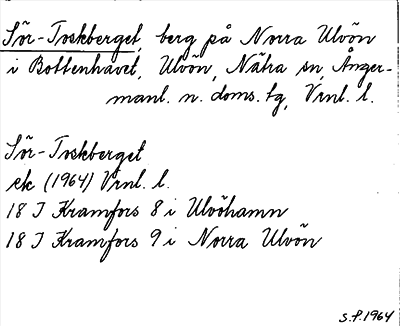 Sör-Toskberget, berg på Norra Ulvön
i Bottenhavet, Ulvön, Nätra sn, Ånger-
manl. n. doms. tg, Vrnl. l.
Sör-Toskberget
ek (1964) Vrnl. l.
18 J Kramfors 8 i Ulvöhamn
18 J Kramfors 9 i Norra Ulvön
S.P. 1964